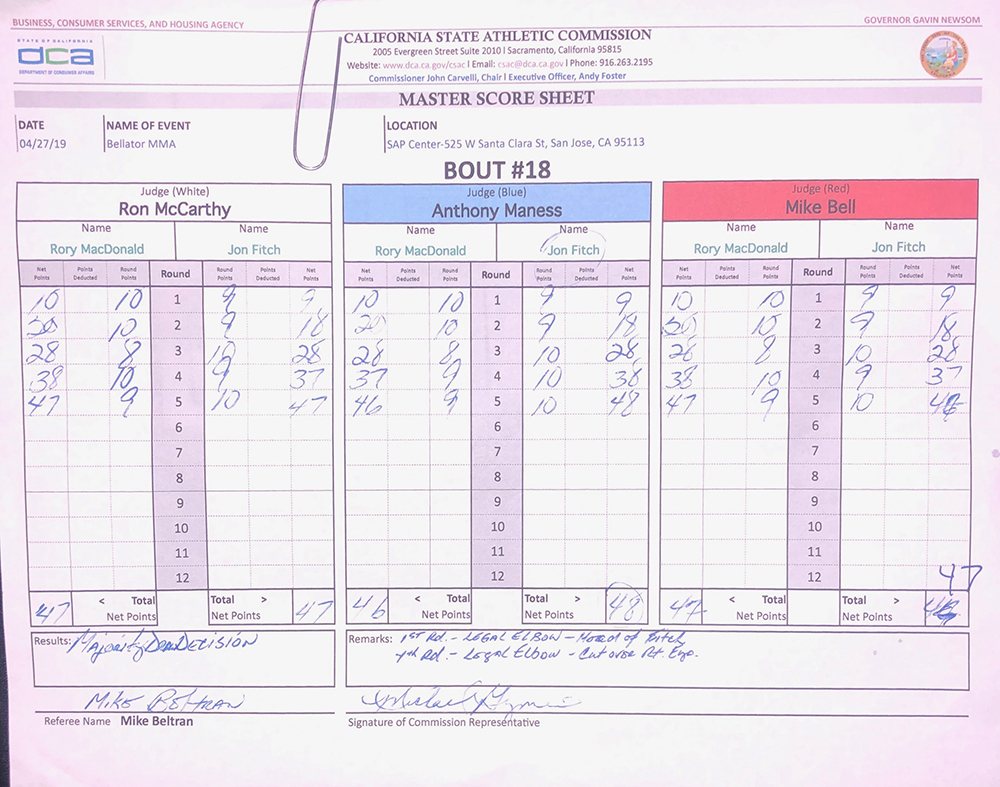 BUSINESS, CONSUMER SERVICES, AND HOUSING AGENCY GOVERNOR GAVIN NEWSOM
STATE OF CALIFORNIA
dca
DEPARTMENT OF CONSUMER AFFAIRS
CALIFORNIA STATE ATHLETIC COMMISSION
2005 Evergreen Street Suite 2010 | Sacramento, California 95815
Website: www.dca.ca.gov/csac | Email: csac@dca.ca.gov | Phone: 916.263.2195
Commissioner John Carvelli, Chair | Executive Officer, Andy Foster
MASTER SCORE SHEET
DATE NAME OF EVENT LOCATION
04/27/19 Bellator MMA SAP Center-525 W Santa Clara St, San Jose, CA 95113
BOUT #18
Judge (White) Judge (Blue) Judge (Red)
Ron McCarthy Anthony Maness Mike Bell
Name Name Name Name Name Name
Rory MacDonald Jon Fitch Rory MacDonald Jon Fitch Rory MacDonald Jon Fitch
Net Points Points Deducted Round Points Round Round Points Points Deducted Net Points Net Points Points Deducted Round Points Round Round Points Points Deducted Net Points Net Points Points Deducted Round Points Round Round Points Points Deducted Net Points
10 10 1 9 9 10 10 1 9 9 10 10 1 9 9
10 2 9 18 20 10 2 9 18 10 2 9 18
28 8 3 10 28 28 8 3 10 28 28 8 3 10 28
38 10 4 9 37 37 9 4 10 38 38 10 4 9 37
47 9 5 10 47 46 9 5 10 48 47 9 5 10
6 6 6
7 7 7
8 8 8
9 9 9
10 10 10
11 11 11
12 12 12 47
47 < Total Net Points Total > Net Points 47 46 < Total Net Points Total > Net Points 48 47 < Total Net Points Total > Net Points
Results: Majority DECISION
Remarks: 1st Rd. - LEGAL ELBOW - Head of Fitch
4th Rd. - LEGAL ELBOW - Cut over Rt. Eye.
MIKE BELTRAN
Referee Name Mike Beltran Signature of Commission Representative